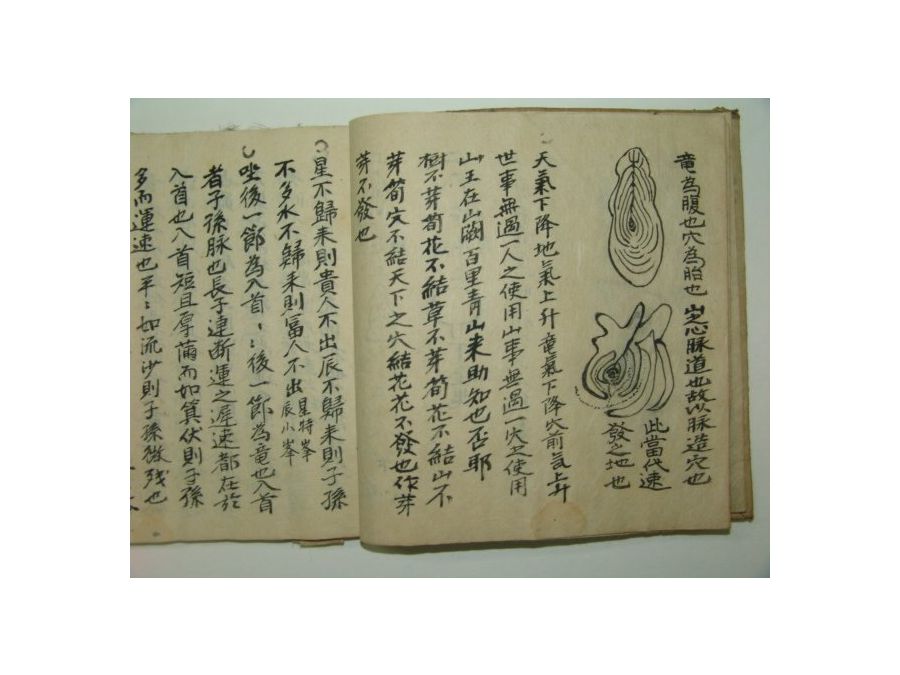 竜為腹也穴為胎也 山之心脉道也故以脉造穴也
此當代速
發之地也
天氣下降地氣上升 竜氣下降穴前气上升
世事無過一人之使用山事無過一穴之使用
山王在山澗百里青山来助知也否耶
樹不芽荀花不結草不芽荀花不結山不
芽荀穴不結天下之穴結花花不發也作芽
芽不發也
星不歸来則貴人不出辰不歸来則子孫
不多水不歸来則冨人不出 星特峯
辰小峯
坐後一節為入首〻〻後一節為竜也入首
者子孫脉也長子連断運之遅速都在於
入首也入首短且厚莆而如箕伏則子孫
多而運速也羊〻如流沙則子孫微残也